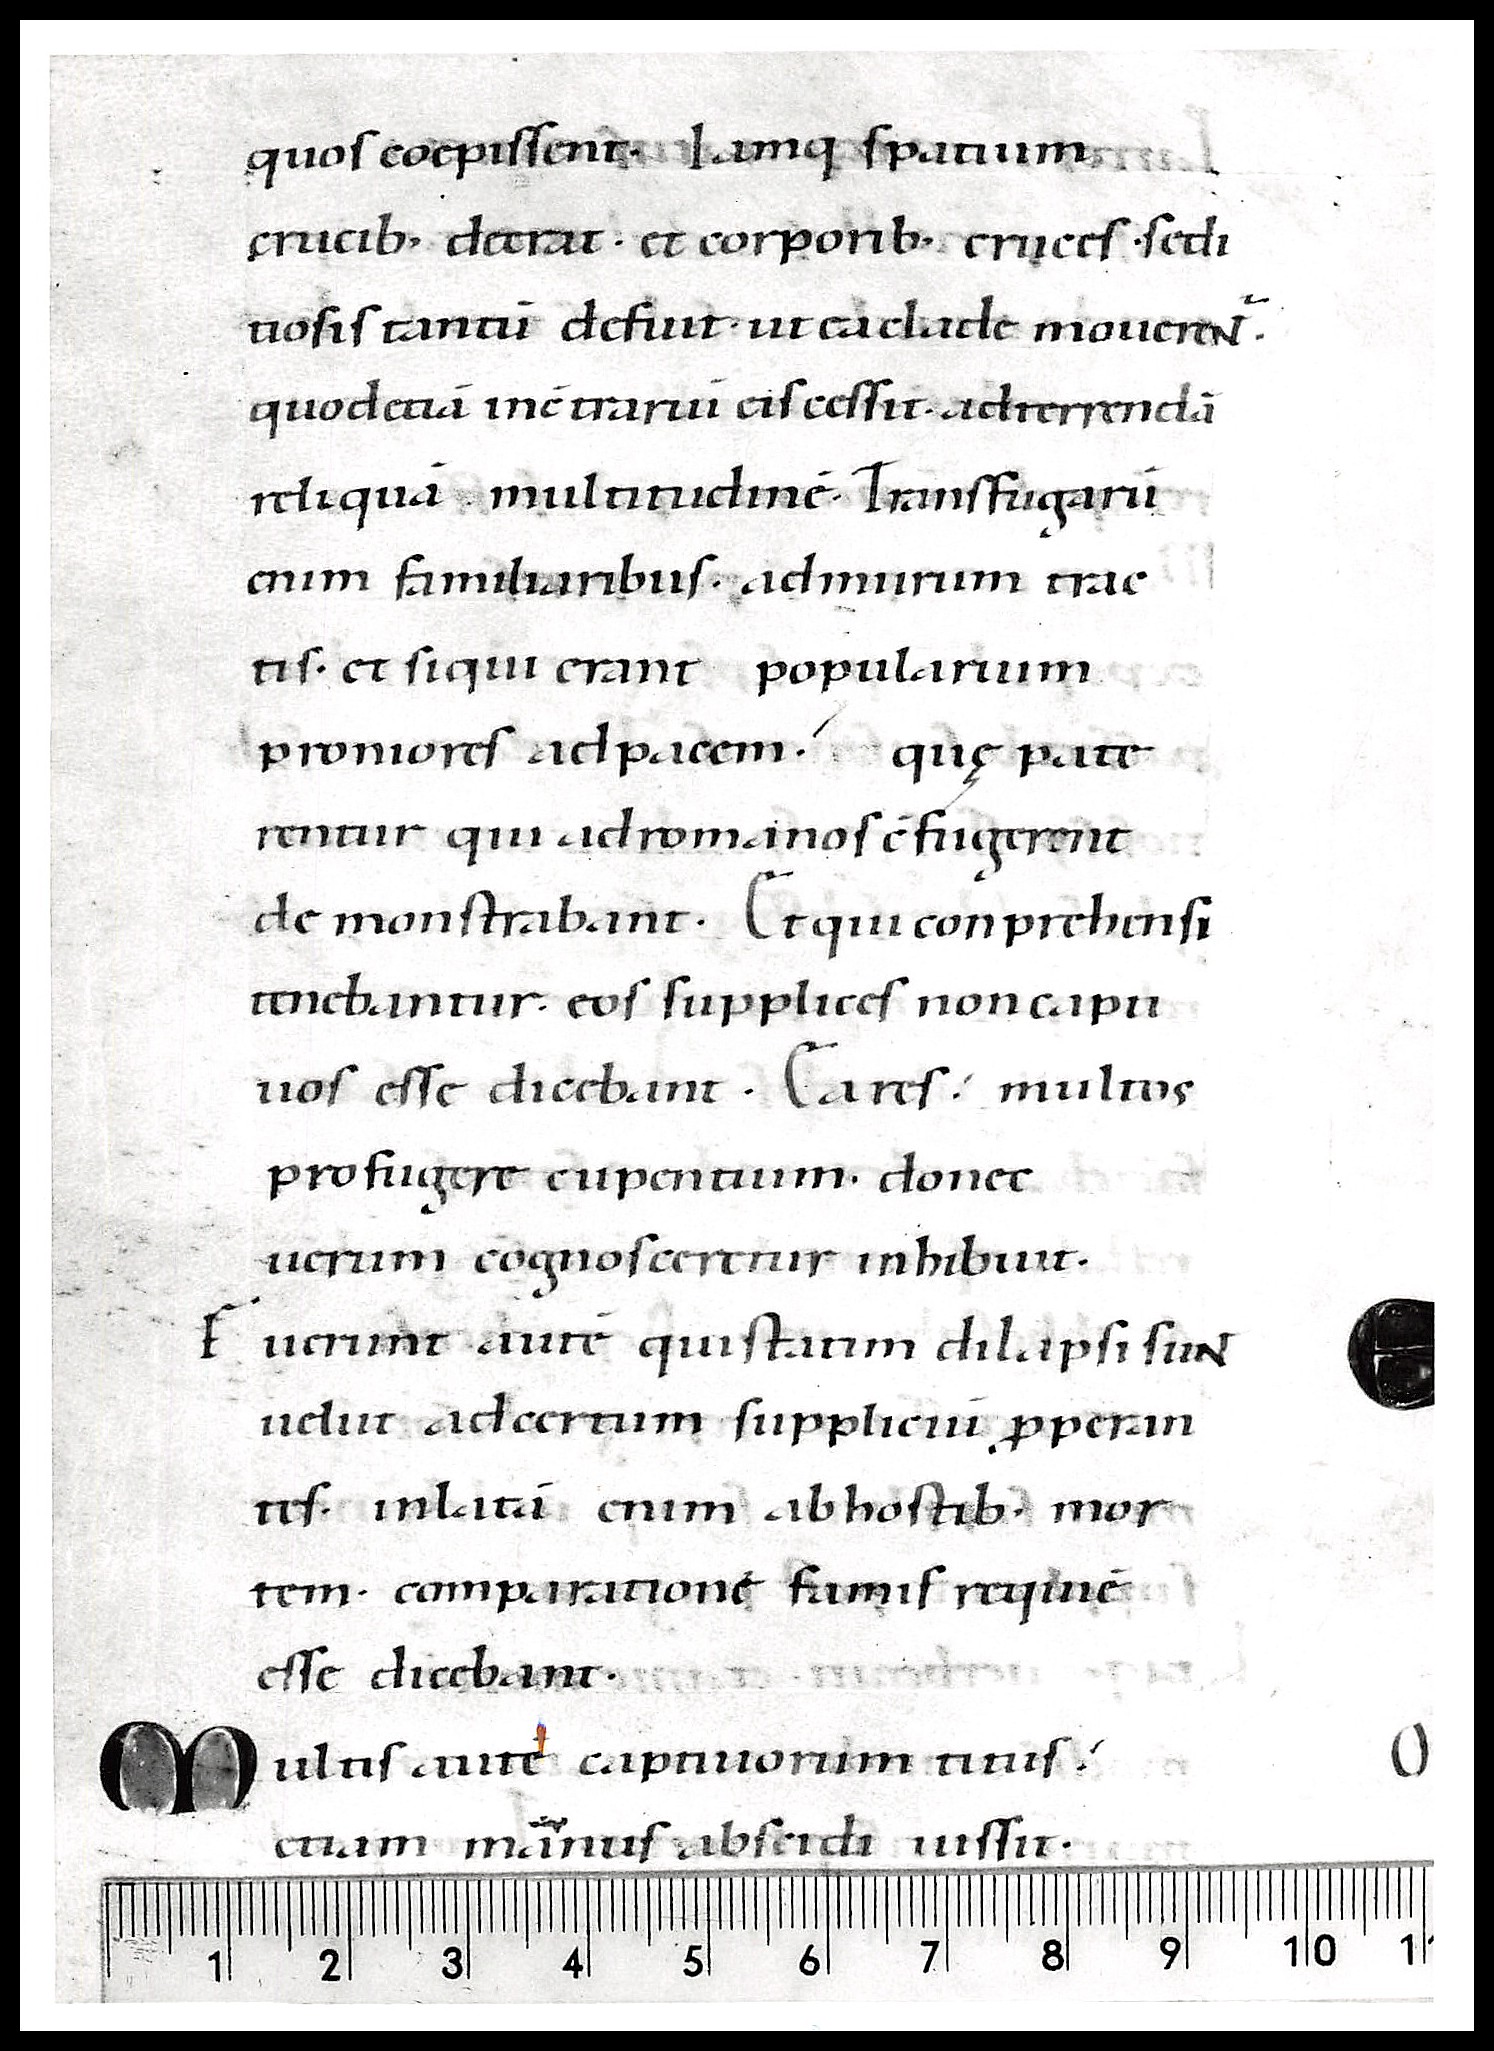 quos coepissent· Iamq spatium
crucib· deerat· et corporib· cruces· sedi
tiosis tantū defuit· ut ea clade mouerent̄·
quod etiā in c̄trariū eis cessit· ad terrendā
reliquā multitudinē· Transfugarū
enim familiaribus· ad murum trac
tis· et siqui erant popularium
proniores ad pacem· quę pate
rentur qui ad romanos c̄fugerent
demonstrabant· Et qui conprehensi
tenebantur· eos supplices non capti
uos esse dicebant· Ea res· multos
profugere cupentium· donec
uerum cognosceretur inhibuit·
Fuerunt autē qui statim dilapsi sunt
uelut ad certum suppliciū ꝓperan
tes· inlatā enim ab hostib· mor
tem· comparationē famis requiē
esse dicebant·
Multis autē captiuorum titus·
etiam manus abscidi iussit·
1 2 3 4 5 6 7 8 9 10 11